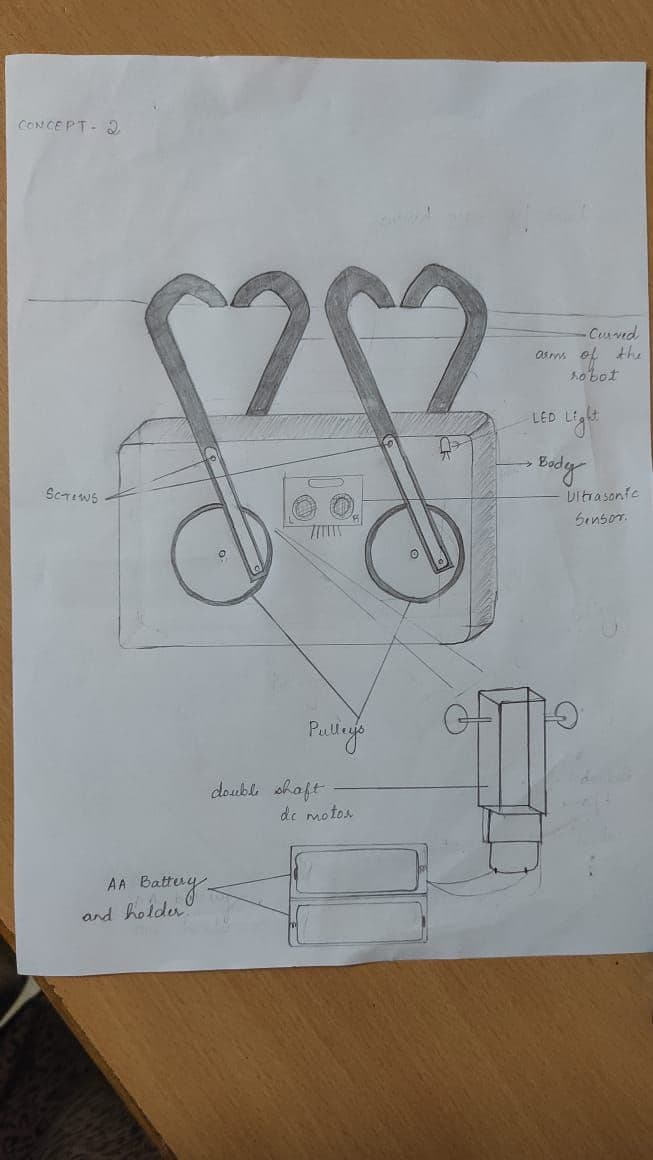 CONCEPT - 2
Curved
arms of the
robot
LED Light
Body
Screws
Ultrasonic
Sensor.
L
R
Pulleys
double shaft
dc motor
AA Battery
and holder.